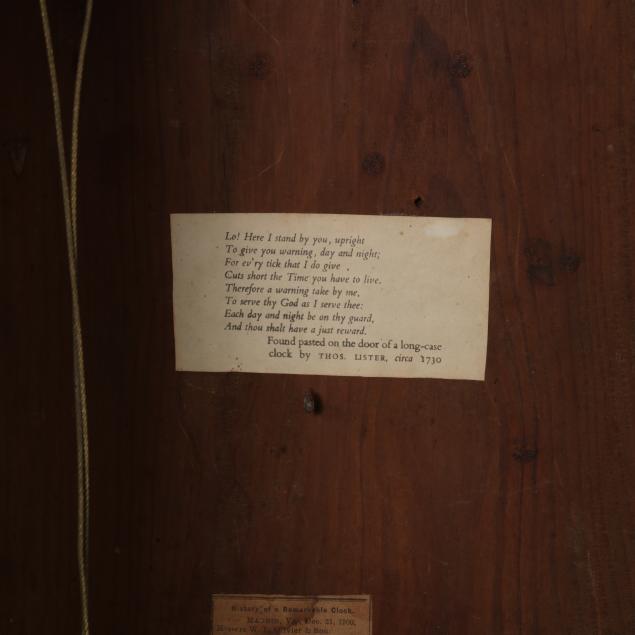 Lo! Here I stand by you, upright
To give you warning, day and night;
For ev'ry tick that I do give
Cuts short the Time you have to live.
Therefore a warning take by me,
To serve thy God as I serve thee:
Each day and night be on thy guard,
And thou shalt have a just reward.
Found pasted on the door of a long-case
clock by THOS. LISTER, circa 1730
History of a Remarkable Clock.
Dec. 21, 1900.
& Son